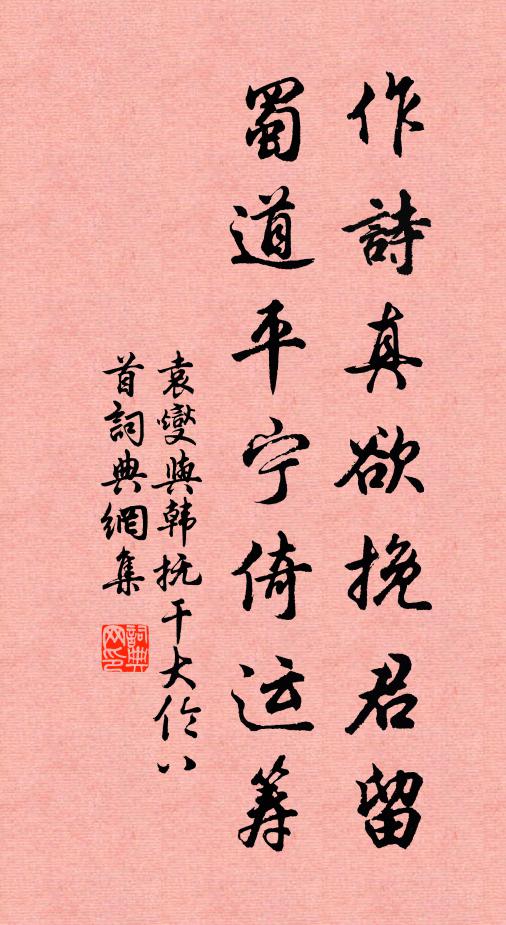 作詩真欲挽君留
蜀道平宁倚运筹
袁燮與韩抚干大伦八
首詞典網集
詞典
网印